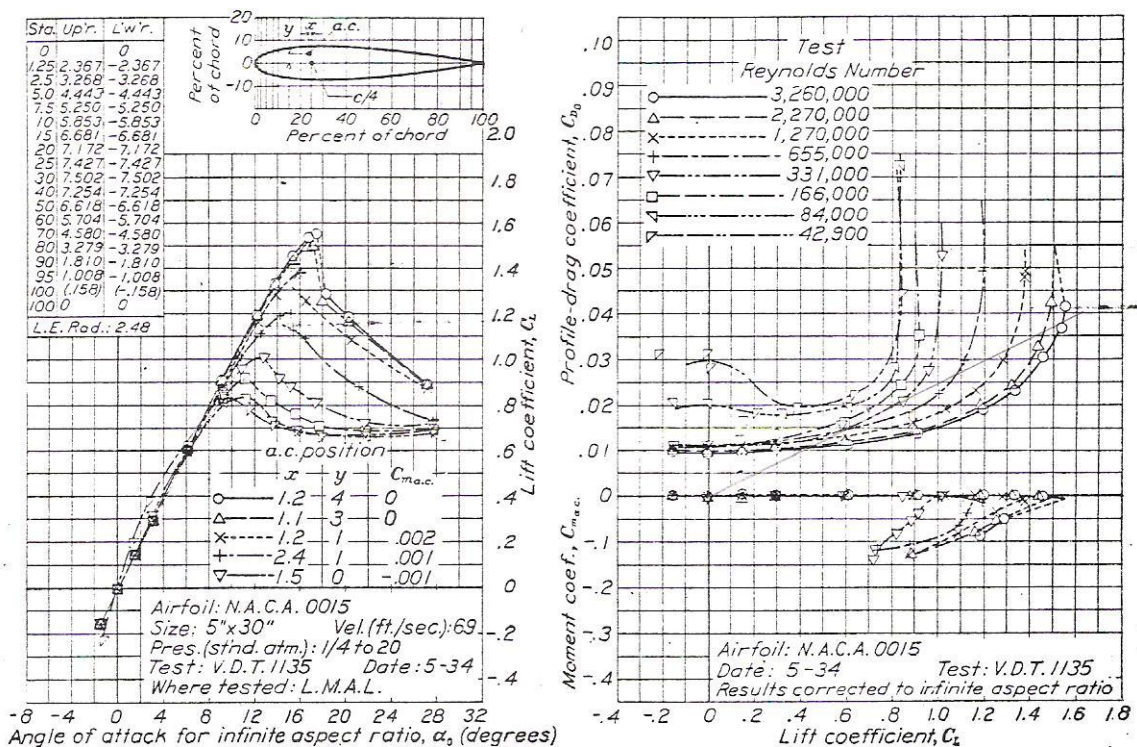 Sta. Up'r. L'w'r.
0 0
1.25 2.367 -2.367
2.5 3.268 -3.268
5.0 4.443 -4.443
7.5 5.250 -5.250
10 5.853 -5.853
15 6.681 -6.681
20 7.172 -7.172
25 7.427 -7.427
30 7.502 -7.502
40 7.254 -7.254
50 6.618 -6.618
60 5.704 -5.704
70 4.580 -4.580
80 3.279 -3.279
90 1.810 -1.810
95 1.008 -1.008
100 (.158) (-.158)
100 0 0
L.E. Rad.: 2.48
Percent of chord
20
10
0
-10
y x a.c.
c/4
0 20 40 60 80 100
Percent of chord
2.0
1.8
1.6
1.4
1.2
1.0
.8
.6
.4
.2
0
-.2
-.4
Lift coefficient, C_L
a.c. position
x y C_m a.c.
1.2 4 0
1.1 3 0
1.2 1 .002
2.4 1 .001
1.5 0 -.001
Airfoil: N.A.C.A. 0015
Size: 5"x30" Vel. (ft./sec.): 69
Pres. (stnd. atm.): 1/4 to 20
Test: V.D.T. 1135 Date: 5-34
Where tested: L.M.A.L.
-8 -4 0 4 8 12 16 20 24 28 32
Angle of attack for infinite aspect ratio, α₀ (degrees)
.10
.09
.08
.07
.06
.05
.04
.03
.02
.01
0
-.1
-.2
-.3
-.4
Profile-drag coefficient, C_D0
Moment coef., C_m a.c.
Test
Reynolds Number
3,260,000
2,270,000
1,270,000
655,000
331,000
166,000
84,000
42,900
Airfoil: N.A.C.A. 0015
Date: 5-34 Test: V.D.T. 1135
Results corrected to infinite aspect ratio
-.4 -.2 0 .2 .4 .6 .8 1.0 1.2 1.4 1.6 1.8
Lift coefficient, C_L